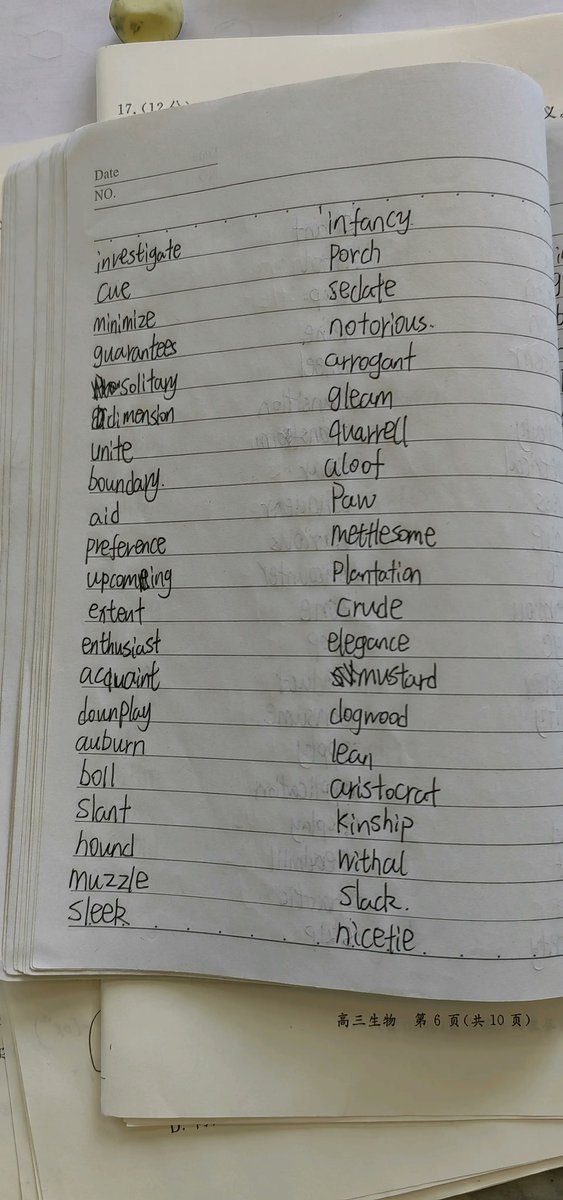 17.(12分)
Date
NO.
investigate
cue
minimize
guarantees
solitary
dimension
unite
boundary.
aid
preference
upcoming
extent
enthusiast
acquaint
downplay
auburn
boll
slant
hound
muzzle
sleek
infancy
porch
sedate
notorious.
arrogant
gleam
quarrell
aloof
Paw
mettlesome
Plantation
crude
elegance
mustard
dogwood
lean
aristocrat
kinship
withal
slack.
nicetie
高三生物 第 6 页(共 10 页)